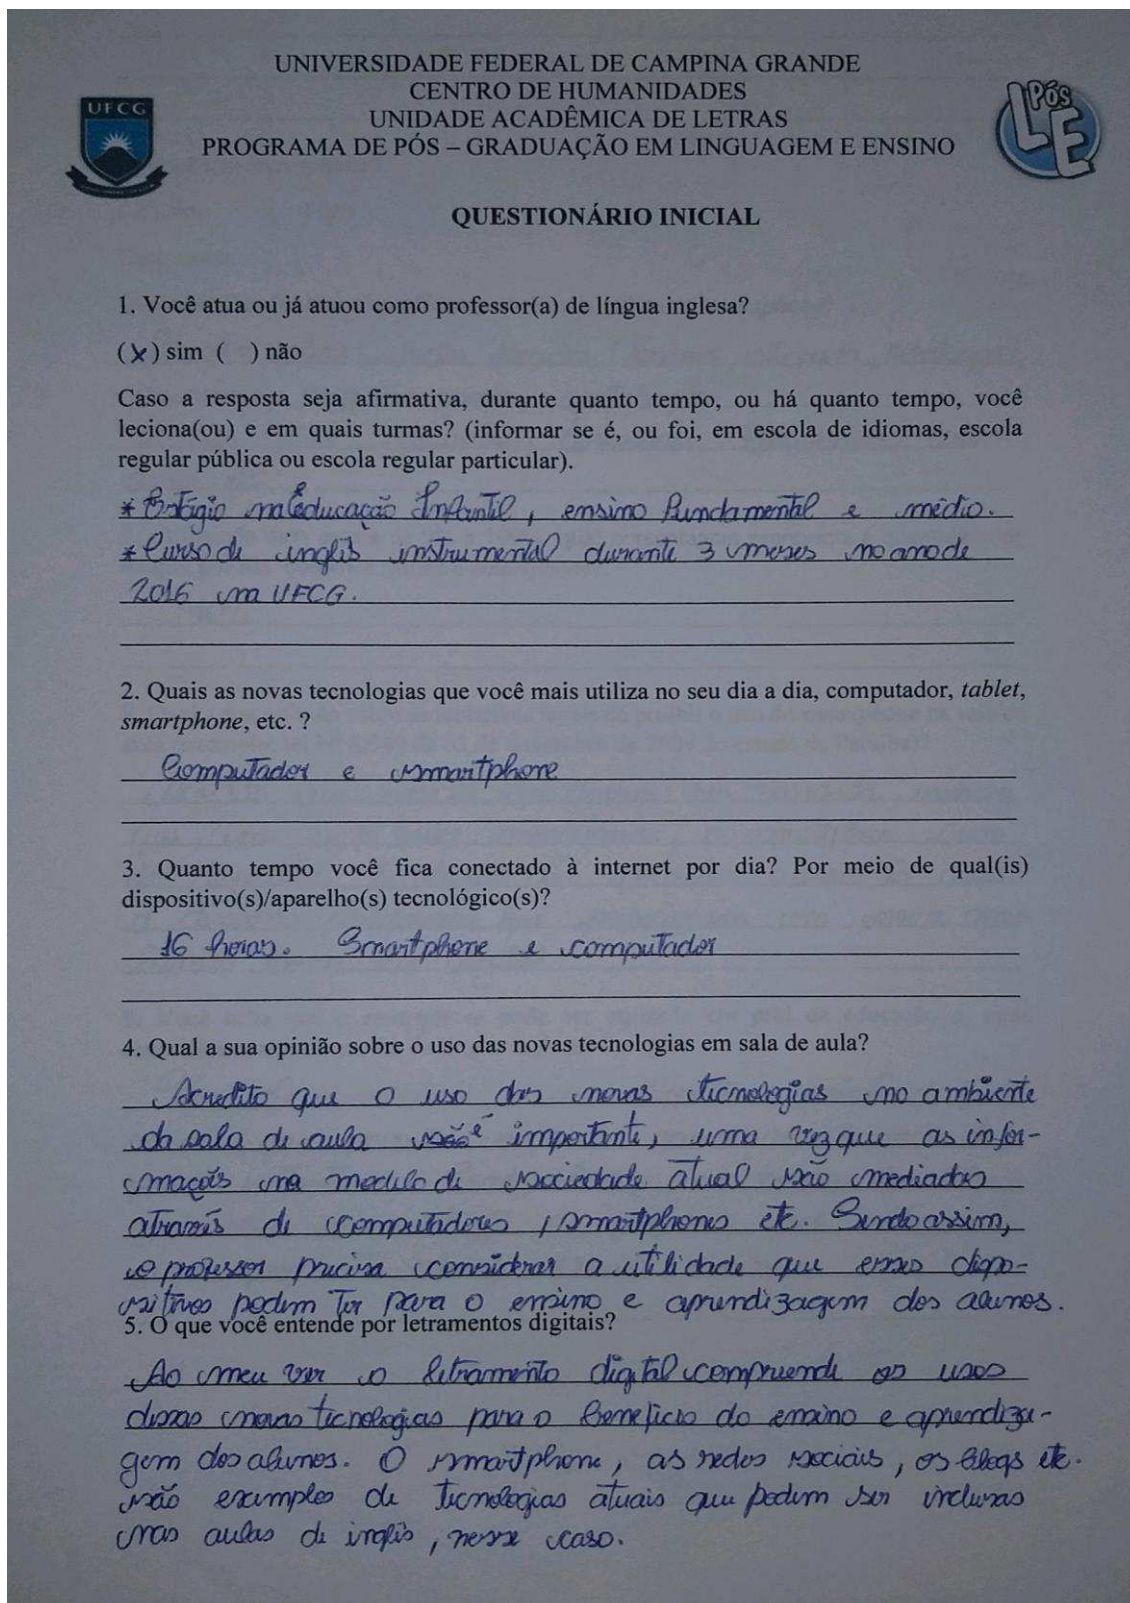 UNIVERSIDADE FEDERAL DE CAMPINA GRANDE
CENTRO DE HUMANIDADES
UNIDADE ACADÊMICA DE LETRAS
PROGRAMA DE PÓS – GRADUAÇÃO EM LINGUAGEM E ENSINO
UFCG
PÓS
LE
QUESTIONÁRIO INICIAL
1. Você atua ou já atuou como professor(a) de língua inglesa?
(x) sim ( ) não
Caso a resposta seja afirmativa, durante quanto tempo, ou há quanto tempo, você
leciona(ou) e em quais turmas? (informar se é, ou foi, em escola de idiomas, escola
regular pública ou escola regular particular).
* Estágio na Educação Infantil, ensino fundamental e médio.
* Curso de inglês instrumental durante 3 meses no ano de
2016 na UFCG.
2. Quais as novas tecnologias que você mais utiliza no seu dia a dia, computador, tablet,
smartphone, etc. ?
Computador e smartphone
3. Quanto tempo você fica conectado à internet por dia? Por meio de qual(is)
dispositivo(s)/aparelho(s) tecnológico(s)?
16 horas. Smartphone e computador
4. Qual a sua opinião sobre o uso das novas tecnologias em sala de aula?
Acredito que o uso das novas tecnologias no ambiente
da sala de aula é importante, uma vez que as infor-
mações na medida de sociedade atual são mediadas
através de computadores, smartphones etc. Sendo assim,
o professor precisa considerar a utilidade que esses dispo-
sitivos podem ter para o ensino e aprendizagem dos alunos.
5. O que você entende por letramentos digitais?
Ao meu ver o letramento digital compreende os usos
dessas novas tecnologias para o benefício do ensino e aprendiza-
gem dos alunos. O smartphone, as redes sociais, os blogs etc.
são exemplos de tecnologias atuais que podem ser inclusas
nas aulas de inglês, nesse caso.